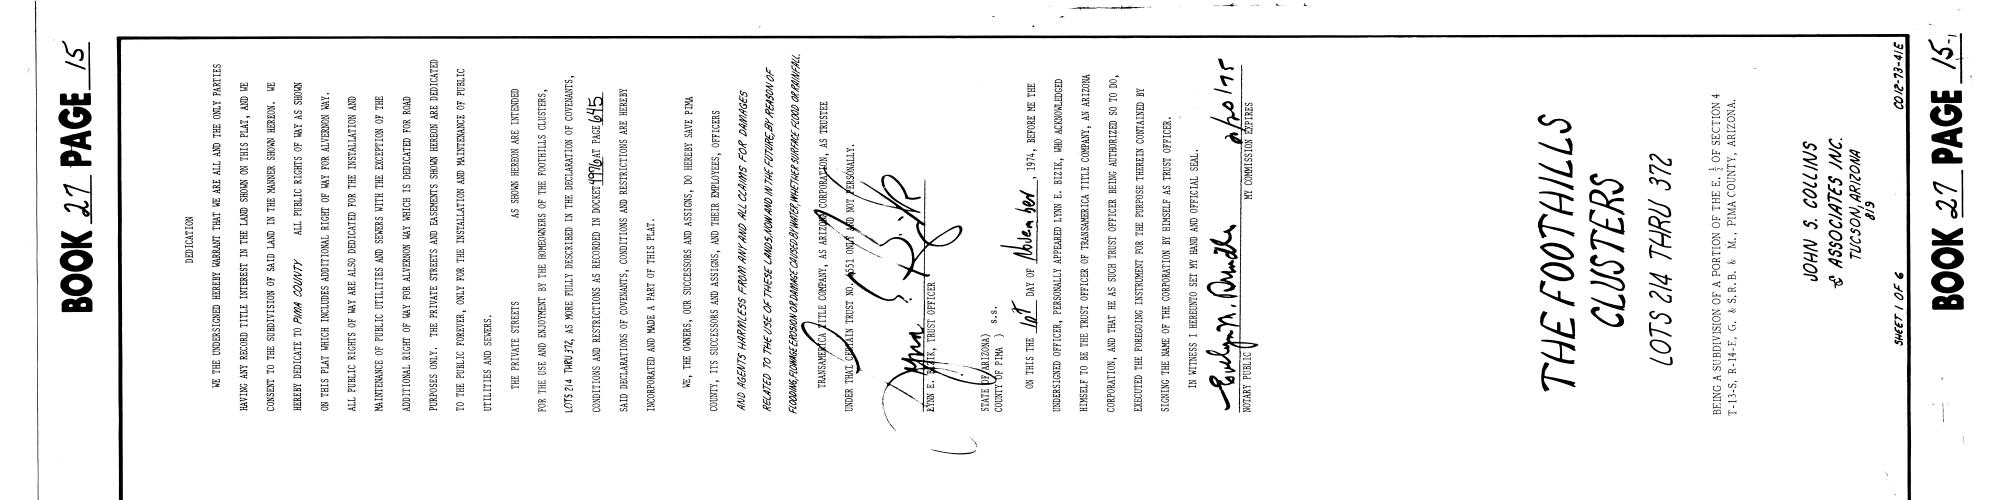 BOOK 27 PAGE 15
DEDICATION
WE THE UNDERSIGNED HEREBY WARRANT THAT WE ARE ALL AND THE ONLY PARTIES
HAVING ANY RECORD TITLE INTEREST IN THE LAND SHOWN ON THIS PLAT, AND WE
CONSENT TO THE SUBDIVISION OF SAID LAND IN THE MANNER SHOWN HEREON. WE
HEREBY DEDICATE TO PIMA COUNTY ALL PUBLIC RIGHTS OF WAY AS SHOWN
ON THIS PLAT WHICH INCLUDES ADDITIONAL RIGHT OF WAY FOR ALVERNON WAY.
ALL PUBLIC RIGHTS OF WAY ARE ALSO DEDICATED FOR THE INSTALLATION AND
MAINTENANCE OF PUBLIC UTILITIES AND SEWERS WITH THE EXCEPTION OF THE
ADDITIONAL RIGHT OF WAY FOR ALVERNON WAY WHICH IS DEDICATED FOR ROAD
PURPOSES ONLY. THE PRIVATE STREETS AND EASEMENTS SHOWN HEREON ARE DEDICATED
TO THE PUBLIC FOREVER, ONLY FOR THE INSTALLATION AND MAINTENANCE OF PUBLIC
UTILITIES AND SEWERS.
THE PRIVATE STREETS AS SHOWN HEREON ARE INTENDED
FOR THE USE AND ENJOYMENT BY THE HOMEOWNERS OF THE FOOTHILLS CLUSTERS,
LOTS 214 THRU 372, AS MORE FULLY DESCRIBED IN THE DECLARATION OF COVENANTS,
CONDITIONS AND RESTRICTIONS AS RECORDED IN DOCKET 4976 AT PAGE 645
SAID DECLARATIONS OF COVENANTS, CONDITIONS AND RESTRICTIONS ARE HEREBY
INCORPORATED AND MADE A PART OF THIS PLAT.
WE, THE OWNERS, OUR SUCCESSORS AND ASSIGNS, DO HEREBY SAVE PIMA
COUNTY, ITS SUCCESSORS AND ASSIGNS, AND THEIR EMPLOYEES, OFFICERS
AND AGENTS HARMLESS FROM ANY AND ALL CLAIMS FOR DAMAGES
RELATED TO THE USE OF THESE LANDS, NOW AND IN THE FUTURE, BY REASON OF
FLOODING, FLOWAGE EROSION OR DAMAGE CAUSED BY WATER, WHETHER SURFACE FLOOD OR RAINFALL.
TRANSAMERICA TITLE COMPANY, AS ARIZONA CORPORATION, AS TRUSTEE
UNDER THAT CERTAIN TRUST NO. 551 ONLY AND NOT PERSONALLY.
LYNN E. BIZIK, TRUST OFFICER
STATE OF ARIZONA)
COUNTY OF PIMA ) s.s.
ON THIS THE 10th DAY OF November, 1974, BEFORE ME THE
UNDERSIGNED OFFICER, PERSONALLY APPEARED LYNN E. BIZIK, WHO ACKNOWLEDGED
HIMSELF TO BE THE TRUST OFFICER OF TRANSAMERICA TITLE COMPANY, AN ARIZONA
CORPORATION, AND THAT HE AS SUCH TRUST OFFICER BEING AUTHORIZED SO TO DO,
EXECUTED THE FOREGOING INSTRUMENT FOR THE PURPOSE THEREIN CONTAINED BY
SIGNING THE NAME OF THE CORPORATION BY HIMSELF AS TRUST OFFICER.
IN WITNESS I HEREUNTO SET MY HAND AND OFFICIAL SEAL.
NOTARY PUBLIC MY COMMISSION EXPIRES
THE FOOTHILLS
CLUSTERS
LOTS 214 THRU 372
BEING A SUBDIVISION OF A PORTION OF THE E. ½ OF SECTION 4
T-13-S, R-14-E, G. & S.R.B. & M., PIMA COUNTY, ARIZONA.
JOHN S. COLLINS
& ASSOCIATES INC.
TUCSON, ARIZONA
819
SHEET 1 OF 6 CO12-73-41E
BOOK 27 PAGE 15-1